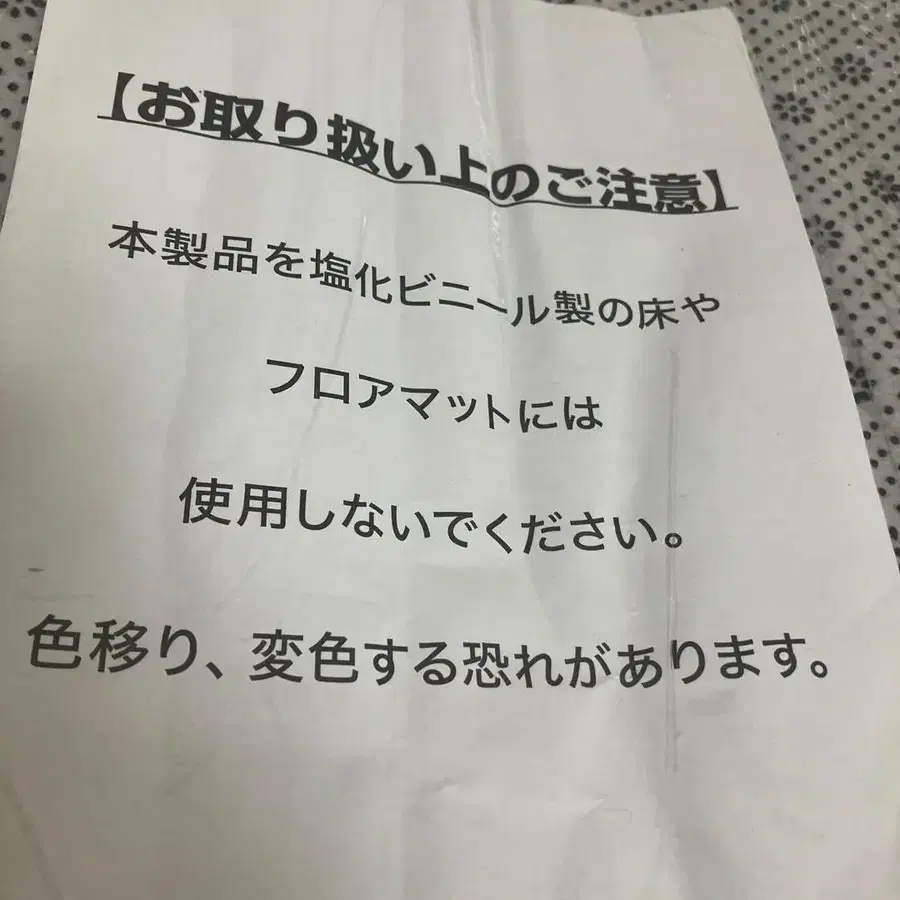 【お取り扱い上のご注意】
本製品を塩化ビニール製の床や
フロアマットには
使用しないでください。
色移り、変色する恐れがあります。